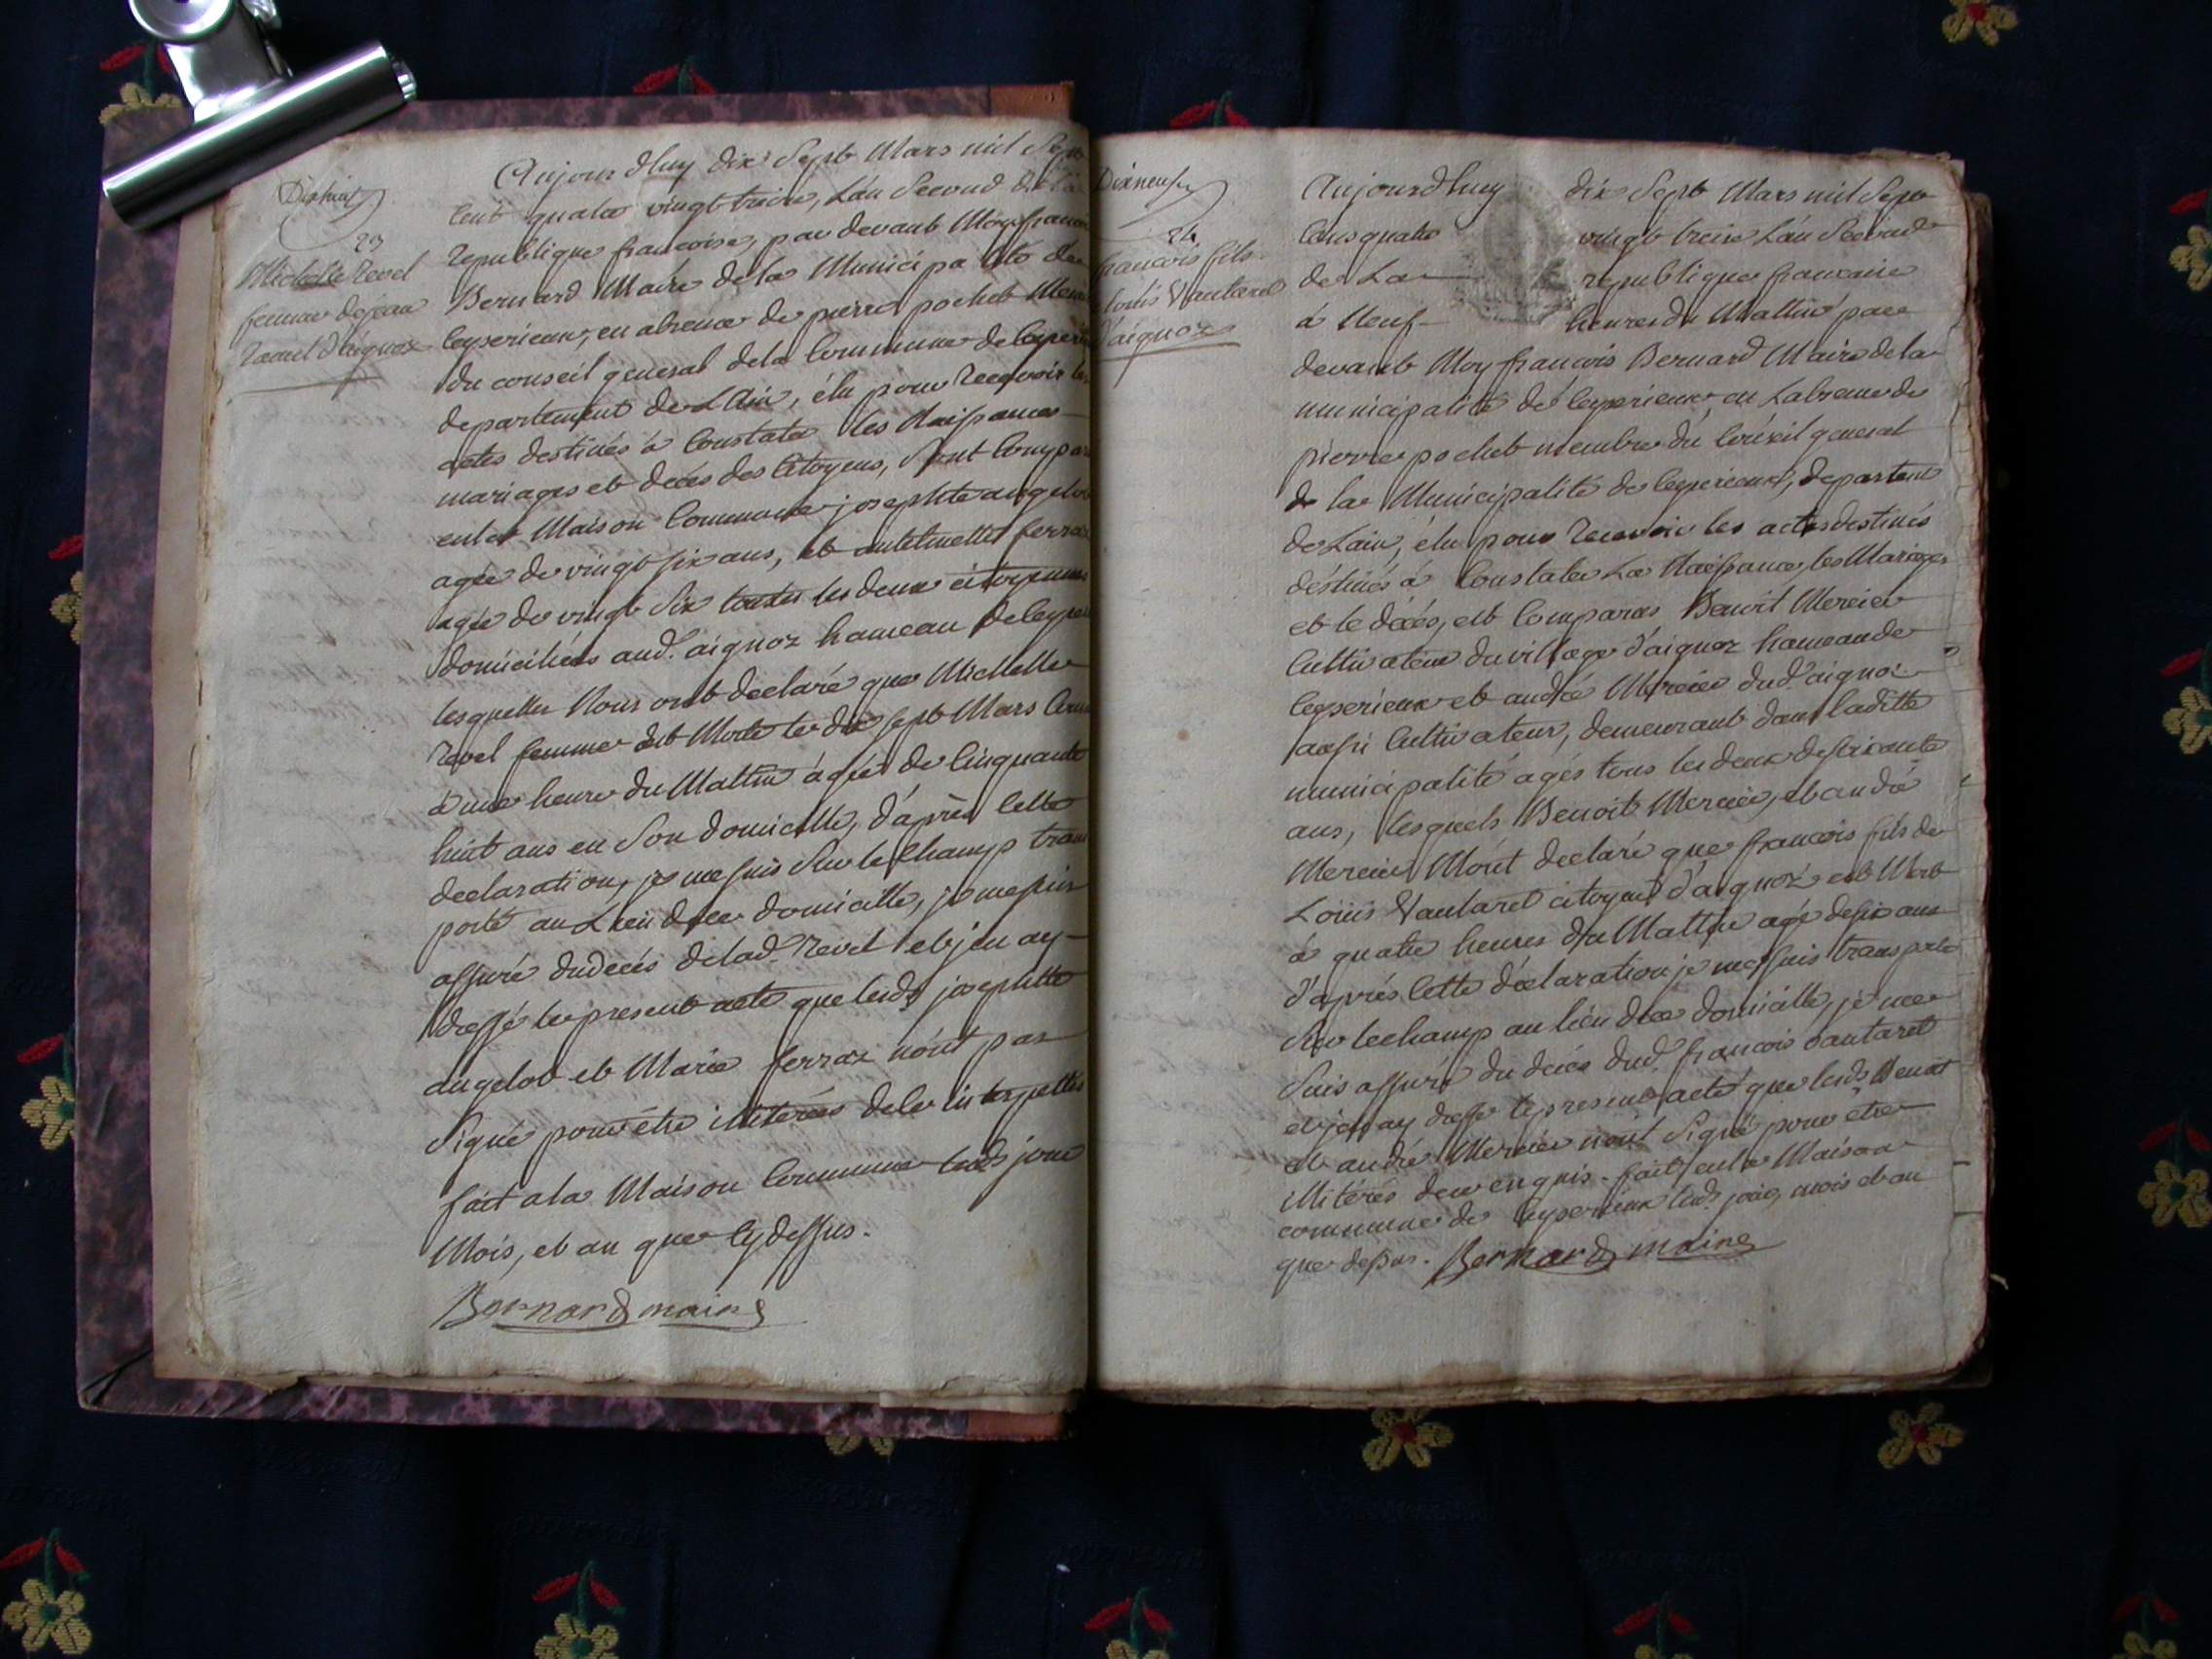 Dixhuit
23
Michelle Revel
femme de jean
d'aignoz
Aujourdhuy dix Sept Mars mil Sept
cent quatre vingt treize, L'an Second de la
republique francoise, par devant Moy francois
Bernard Maire de la Municipalité de
Ceyserieux, en absence de pierre pochet Mem
du conseil general de la Commune de Ceyseri
departement de L'Ain, élu pour recevoir les
actes destinés à Constater les Naissances
mariages et decés des Citoyens, Sont Compar
en la Maison Commune josephte angelot
agée de vingt six ans, et anthelmette ferraz
agée de vingt Six toutes les deux citoyennes
domiciliées aud. aignoz hameau de Ceyseri
lesquelles Nous ont declaré que Michelle
revel femme est Morte le dix sept Mars
à une heure du Mattin agée de Cinquante
huit ans en Son domicille, d'après Cette
declaration, je me suis Sur le Champ trans
porté au Lieu de ce domicille, je me suis
assuré du decés de lad. revel et j'en ay
dressé le present acte que lesd. josephtte
angelot et Marie ferraz n'ont pas
Signé pour être illiterées de ce interpellées
fait a la Maison Commune lesd. jour
Mois, et an que Cy dessus.
Bernard maire
Dixneuf
24
francois fils
louis Vautaret
d'aignoz
Aujourdhuy dix Sept Mars mil Sept
Cens quatre vingt treize L'an Second
de La republique francaise
à Neuf heures du Mattin par
devant Moy francois Bernard Maire de la
municipalité de Ceyserieux en Labsence de
pierre pochet membre du Conseil general
de la Municipalité de Ceyserieux, departemt
de Lain, élu pour recevoir les actes destinés
déstinés à Constater La Naissance, les Mariages
et le décés, est Comparus Benoit Mercier
Cultivateur du village d'aignoz hameau de
Ceyserieux et andré Mercier dud. aignoz
aussi Cultivateur, demeurant dans laditte
municipalité agés tous les deux de soixante
ans, lesquels Benoit Mercier, et andré
Mercier M'ont declaré que francois fils de
Loüis Vautaret citoyen d'aignoz est Mort
à quatre heures du Mattin agé de six ans
d'aprés Cette déclaration je me suis transporté
Sur le champ au lieu de ce domicille, je me
Suis assuré du decés dud. francois vautaret
et j'en ay dressé le present acte que lesd. Benoit
et andré Mercier n'ont Signé pour être
illitérés de ce enquis. fait en la Maison
commune de Ceyserieux lesd. jour, mois et an
que dessus. Bernard maire